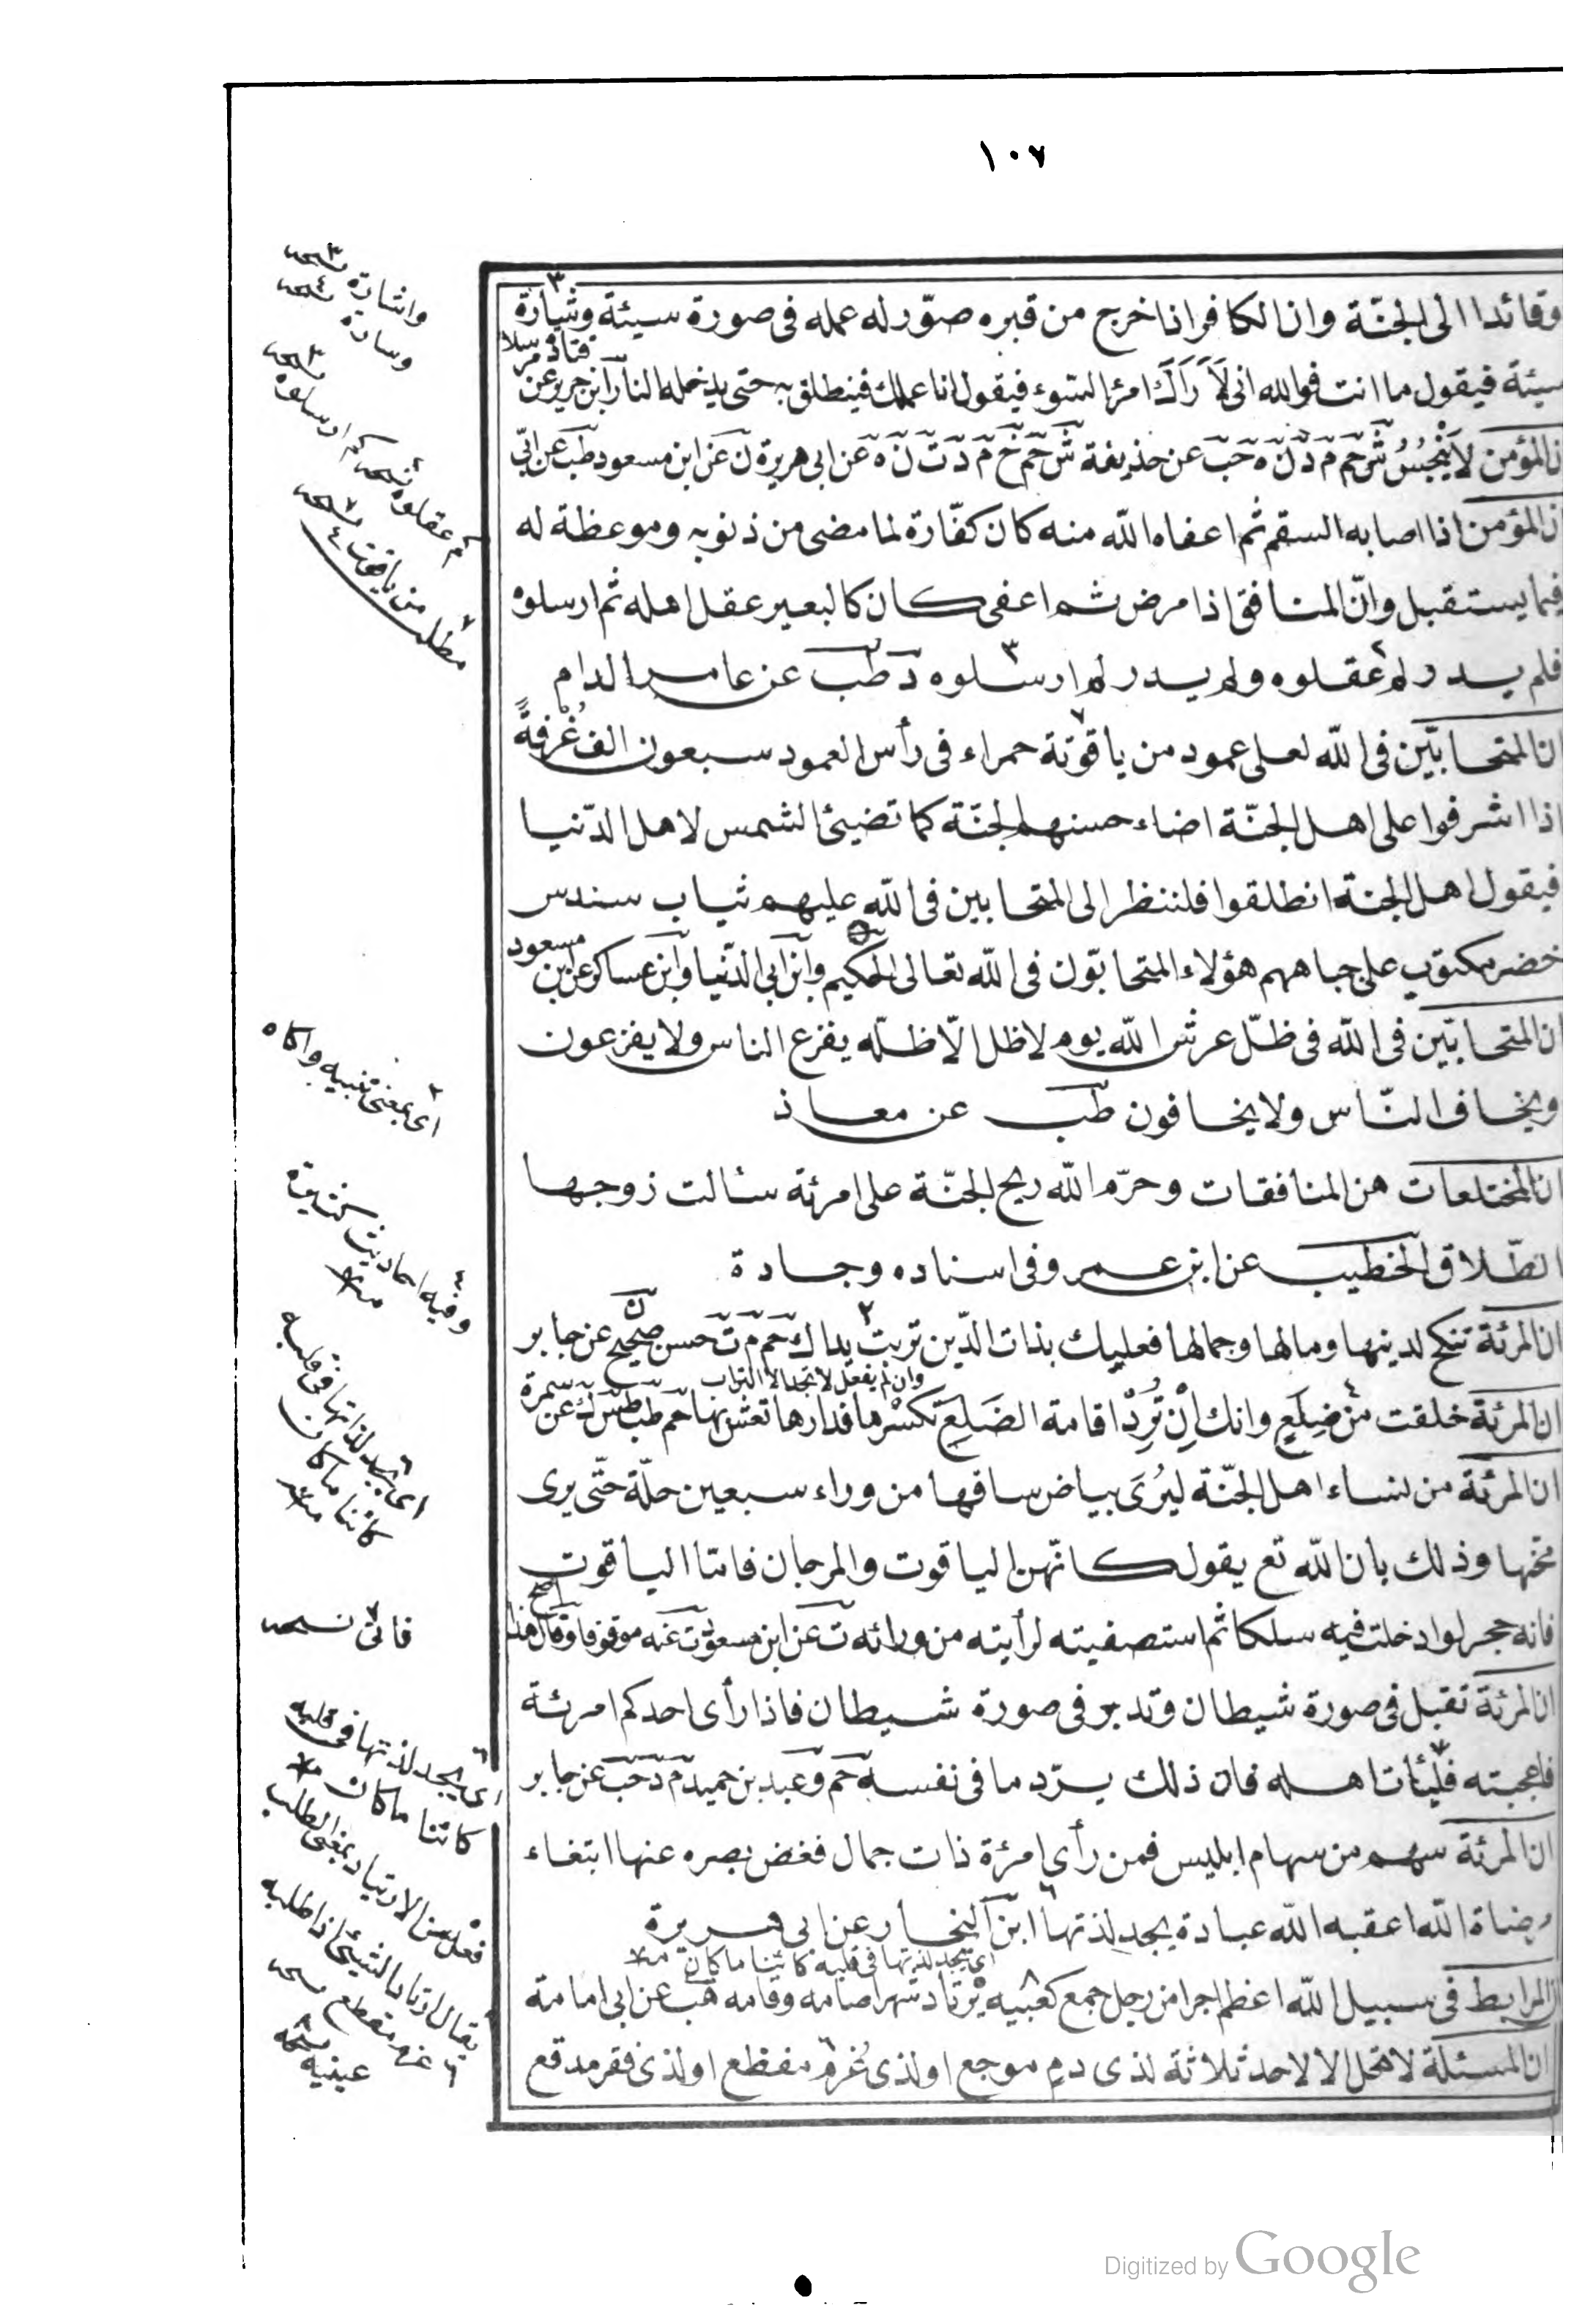 ١٠٧
وقائدا الى الجنّة وان الكافر اذا خرج من قبره صوّر له عمله فى صورة سيئة وشارة
سيئة فيقول ما انت فوالله انى لَاَرَاكَ امرأ السّوء فيقول انا عملك فينطلق به حتى يدخله النار ابن جرير عن
قتادة مرسلا
ن المؤمن لَا يَنْجُسُ ش حم م د ن ه حب عن حذيفة ش حم خ م د ت ن ه عن ابى هريرة ن عن ابن مسعود طب عن ابى
ن المؤمن اذا اصابه السقم ثم اعفاه الله منه كان كفّارة لما مضى من ذنوبه وموعظة له
فيما يستقبل وانّ المنافق اذا مرض ثم اعفى كان كالبعير عقل اهله ثم ارسلوه
فلم يدر لم عقلوه ولم يدر لم ارسلوه د طب عن عامر الدام
ان المتحابّين فى الله لعلى عمود من ياقوتة حمراء فى رأس العمود سبعون الف غُرْفةً
اذا اشرفوا على اهل الجنّة اضاء حسنهم الجنّة كما تضيئ الشمس لاهل الدّنيا
فيقول اهل الجنة انطلقوا فلننظر الى المتحابين فى الله عليهم ثياب سندس
خضر مكتوب على جباههم هؤلاء المتحابّون فى الله تعالى الحكيم وابن ابى الدّنيا وابن عساكر عن ابن
مسعود
ان المتحابّين فى الله فى ظلّ عرش الله يوم لا ظل الّا ظلّه يفزع الناس ولا يفزعون
ويخاف النّاس ولا يخافون طب عن معاذ
ان المختلعات هن المنافقات وحرّم الله ريح الجنّة على امرئة سئالت زوجها
الطّلاق الخطيب عن ابن عمر وفى اسناده وجادة
ان المرئة تنكح لدينها ومالها وجمالها فعليك بذات الدّين تربت يداك حم م ت حسن صحيح ن عن جابر
وان لم يفعل لا تجد الا التراب
ان المرئة خلقت من ضِلَعٍ وانك اِنْ تُرِدْ اقامة الضَلِعِ تكسْرها فدارها تعش بها حم طب طس ك عن
سمرة
ان المرئة من نساء اهل الجنّة ليُرىَ بياض ساقها من وراء سبعين حلّة حتّى يرى
مخّها وذلك بان الله تع يقول كانّهن الياقوت والمرجان فامّا الياقوت
فانه حجر لو ادخلت فيه سلكا ثم استصفيته لرأيته من ورائه ت عن ابن مسعود ت عنه موقوفا وقال هذا
اصح
ان المرئة تقبل فى صورة شيطان وتدبر فى صورة شيطان فاذا رأى احدكم امرئة
فاعجبته فليئات اهله فان ذلك يردّ ما فى نفسه حم وعبد بن حميد م د حب عن جابر
ان المرئة سهم من سهام ابليس فمن رأى امرئة ذات جمال فغض بصره عنها ابتغاء
رضاة الله اعقبه الله عبادة يجد لذتها ابن النجار عن ابى هريرة
اى يجد لذتها فى قلبه كائنا ما كان منه
ان المرابط فى سبيل الله اعظم اجرا من رجل جمع كعبيه يرتاد شهرا صامه وقامه هب عن ابى امامة
ان المسئلة لا تحل الا لاحد ثلاثة لذى دم موجع او لذى غُرم مفظع او لذى فقر مدقع
واشارة نسخه
وسارة نسخه
ثم عقلوه نسخه ثم ارسلوه نسخه
مطلب من ياقوت نسخه
اى بمعنى تنبيه واكاه
وفيه احاديث كثيرة
منه
اى يجد لذاتها فى قلبه
كائنا ما كان
منه
فاتى نسخه
اى يجد لذتها فى قلبه
كائنا ما كان منه
فعل من الارتياد بمعنى الطلب
يقال ارتاد الشيئ اذا طلبه
غرم مقطع نسخه
عينيه نسخه
Digitized by Google